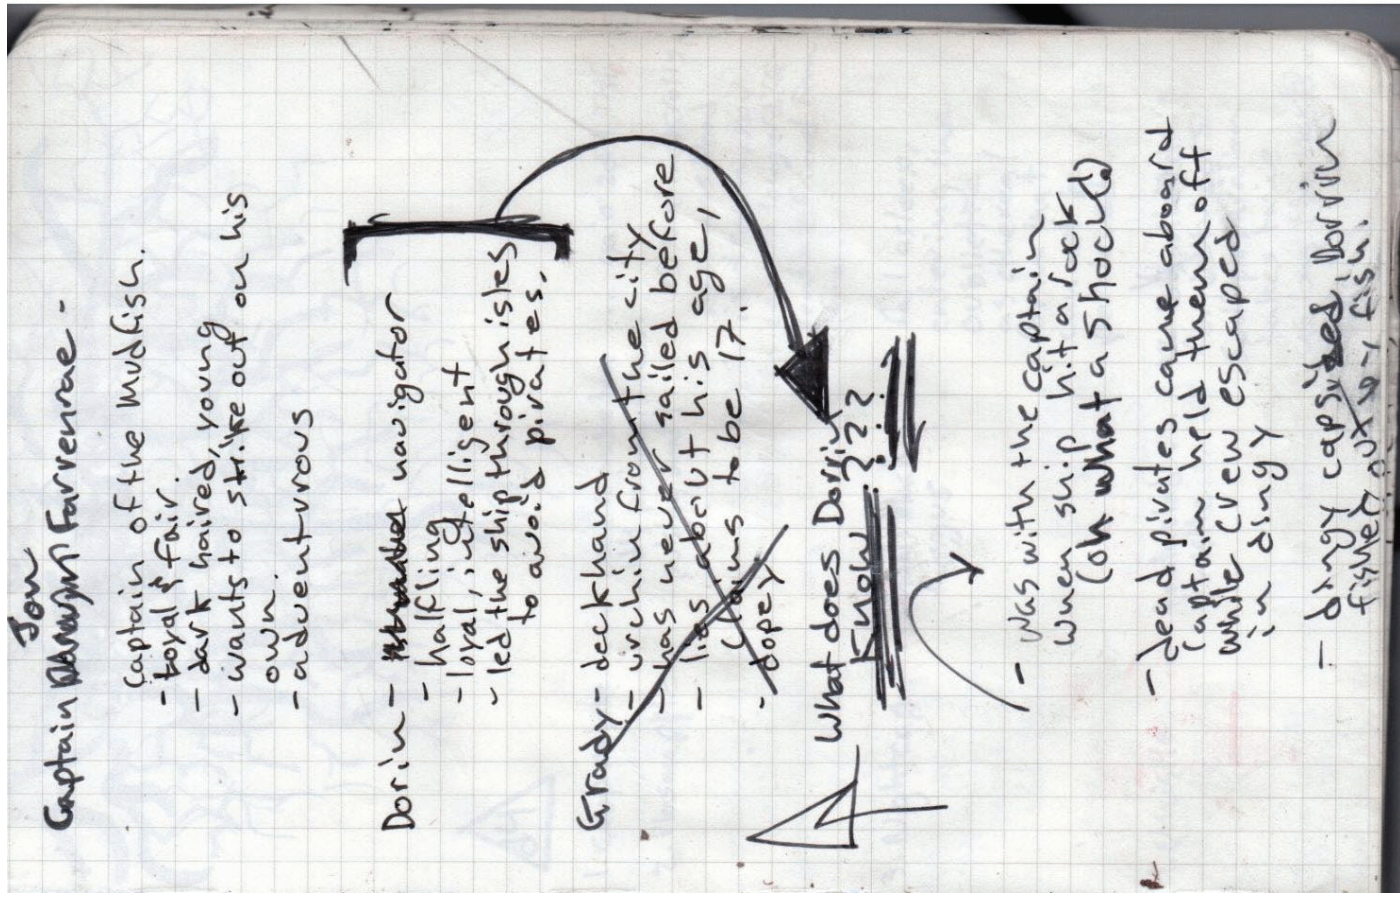 Jon
Captain Farrenrae -
Captain of the Mudfish.
- loyal & fair.
- dark haired, young
- wants to strike out on his
own.
- adventurous
Dorin - navigator
- halfling
- loyal, intelligent
- led the ship through isles
to avoid pirates.
Grady - deckhand
- urchin from the city
- has never sailed before
- lies about his age,
claims to be 17.
- dopey
What does Dorrin
know ???
- was with the captain
when ship hit a rock
(oh what a shock!)
- dead pirates came aboard
captain held them off
while crew escaped
in dingy
- dingy capsized, Dorrin
fished out by fish.